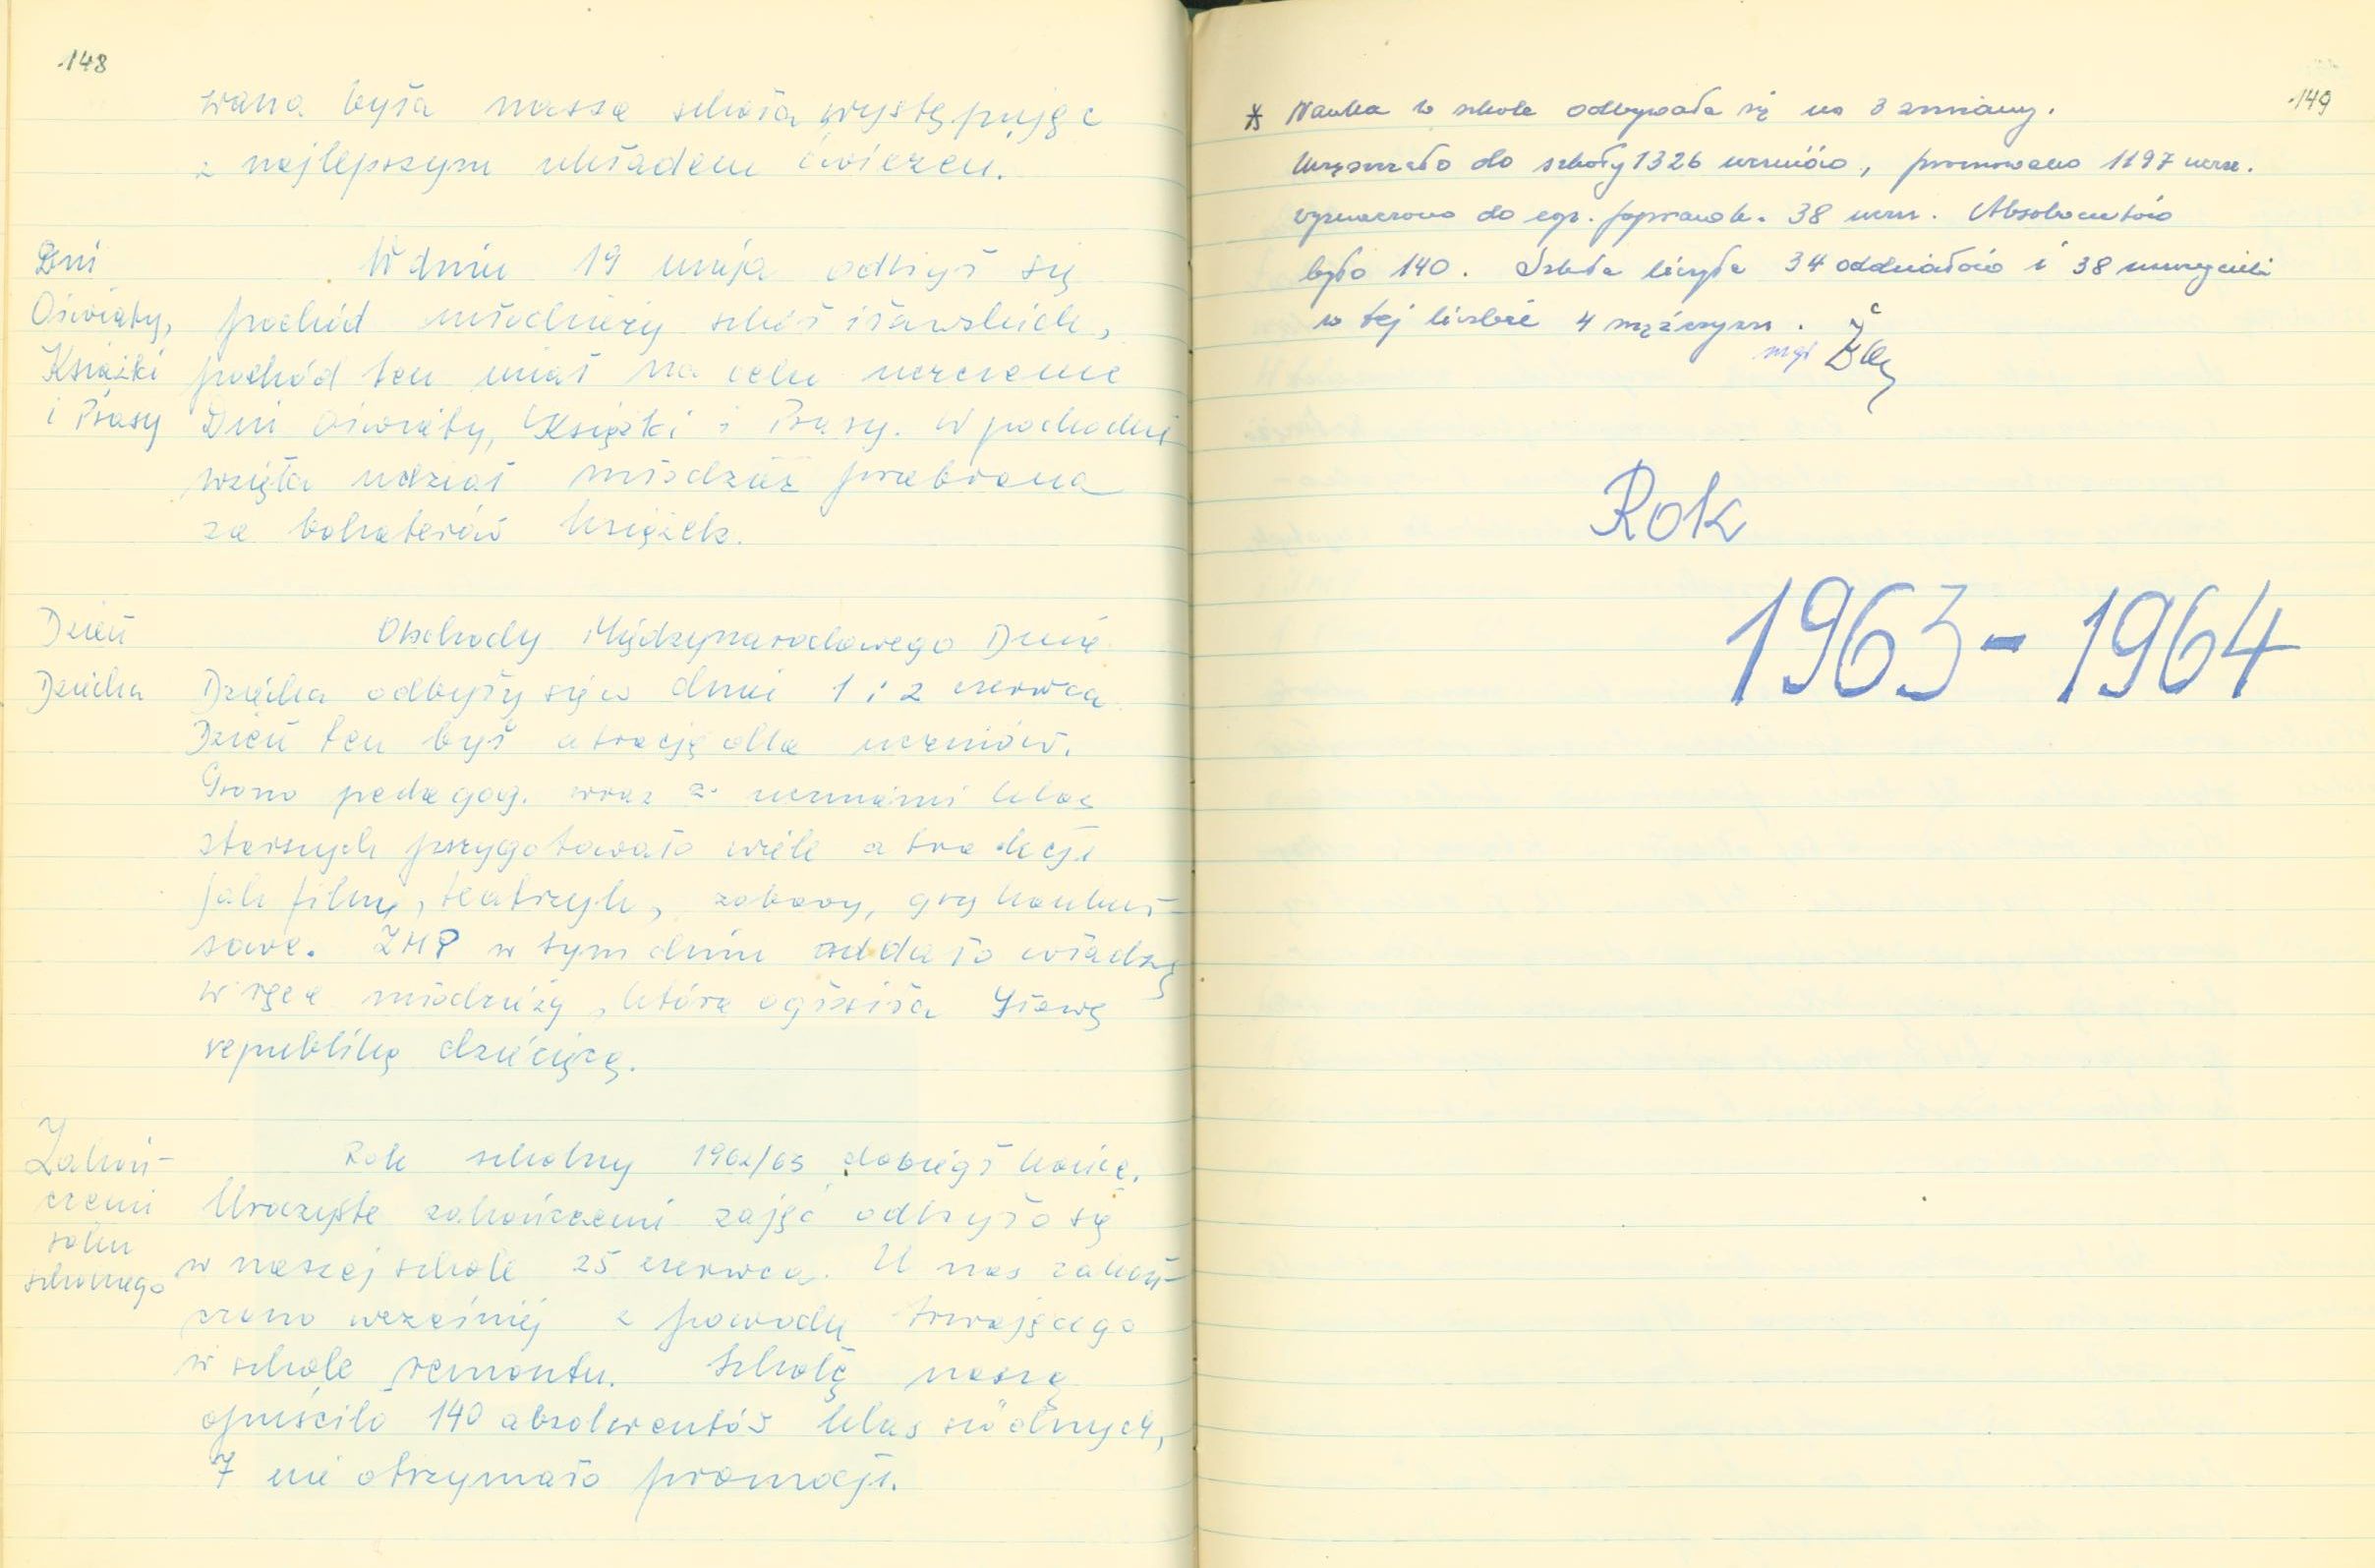 148
wana była nasza szkoła występując
z najlepszym układem ćwiczeń.
Dni
Oświaty,
Książki
i Prasy
W dniu 19 maja odbył się
pochód młodzieży szkół iławskich,
pochód ten miał na celu uczczenie
Dni Oświaty, Książki i Prasy. W pochodzie
wzięła udział młodzież przebrana
za bohaterów książek.
Dzień
Dziecka
Obchody Międzynarodowego Dnia
Dziecka odbyły się w dniu 1 i 2 czerwca
Dzień ten był atrakcją dla uczniów.
Grono pedagog. wraz z uczniami klas
starszych przygotowało wiele atrakcji
jak filmy, teatrzyk, zabawy, gry konkur-
sowe. ZHP w tym dniu oddało władzę
w ręce młodzieży, która ogłosiła Iławę
republiką dziecięcą.
Zakoń-
czenie
roku
szkolnego
Rok szkolny 1962/63 dobiegł końca.
Uroczyste zakończenie zajęć odbyło się
w naszej szkole 25 czerwca. U nas zakoń-
czono wcześniej z powodu trwającego
w szkole remontu. Szkołę naszą
opuściło 140 absolwentów klas siódmych,
7 nie otrzymało promocji.
149
* Nauka w szkole odbywała się na 3 zmiany.
Uczęszczało do szkoły 1326 uczniów, promowano 1197 uczn.
wyznaczono do egz. poprawk. 38 uczn. Absolwentów
było 140. Szkoła liczyła 34 oddziałów i 38 nauczycieli
w tej liczbie 4 mężczyzn.
mgr
Rok
1963-1964